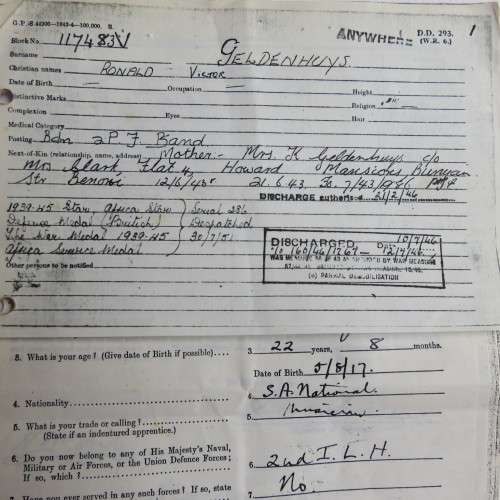 G.P.-S 44300-1942-4-100,000. S.
ANYWHERE D.D. 293.
(W.R. 6.)
1
Block No. 117483V
Surname GELDENHUYS.
Christian names RONALD VICTOR
Date of Birth — Occupation — Height
Distinctive Marks Religion
Complexion Eyes Hair
Medical Category
Posting Bdn 2P F Band
Next-of-Kin (relationship, name, address) Mother.- Mrs. K Geldenhuys c/o
Mrs Clark, Flat 4, Howard Mansions, Bunyan
Str Benoni 12/6/45 21.6.43. 7/43/986
DISCHARGE authorised 21/2/46
1939-45 Star, Africa Star Serial 286
Defence Medal (British) Despatched
The War Medal 1939-45 30/7/51
Africa Service Medal
Other persons to be notified
DISCHARGED 10/7/46
12/7/46
(a) DEMOBILISATION
3. What is your age? (Give date of Birth if possible).... 3. 22 years, 8 months.
Date of Birth 5/8/17.
4. Nationality 4. S.A. National.
5. What is your trade or calling? 5.
(State if an indentured apprentice.)
6. Do you now belong to any of His Majesty's Naval,
Military or Air Forces, or the Union Defence Forces;
If so, which? 6. 2nd I. L. H.
7. Have you ever served in any such forces? If so, state 7. No